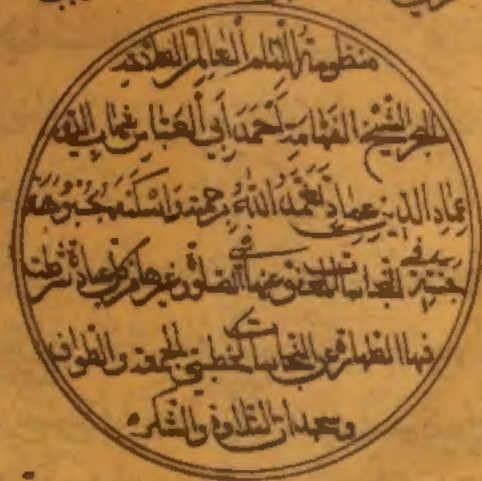 منظومة الامام العالم العلامة
الحبر الشيخ الفهامة احمد أبي العباس شهاب
عماد الدين عماد تغمده الله برحمته واسكنه بحبوحة
جنته في النجاسات المعفو عنها في الصلوة وغيرها من كل عبادة شرطت
فيها الطهارة عن النجاسات كخطبتي الجمعة والطواف
وسجدات التلاوة والشكر